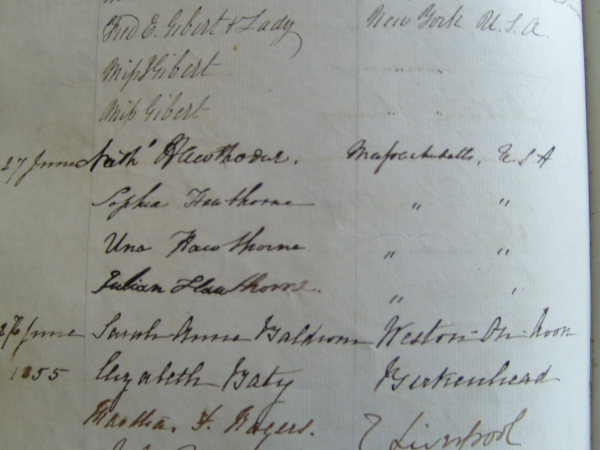 Fred E. Gibert & Lady New York U.S.A.
Miss Gibert " "
Miss Gibert " "
27 June Nath' Hawthorne. Massachusetts, U S A
Sophia Hawthorne " "
Una Hawthorne " "
Julian Hawthorne. " "
June Sarah Anne Baldwin Weston-On-
1855 Elizabeth Baty Birkenhead
Martha F. Rogers. Liverpool